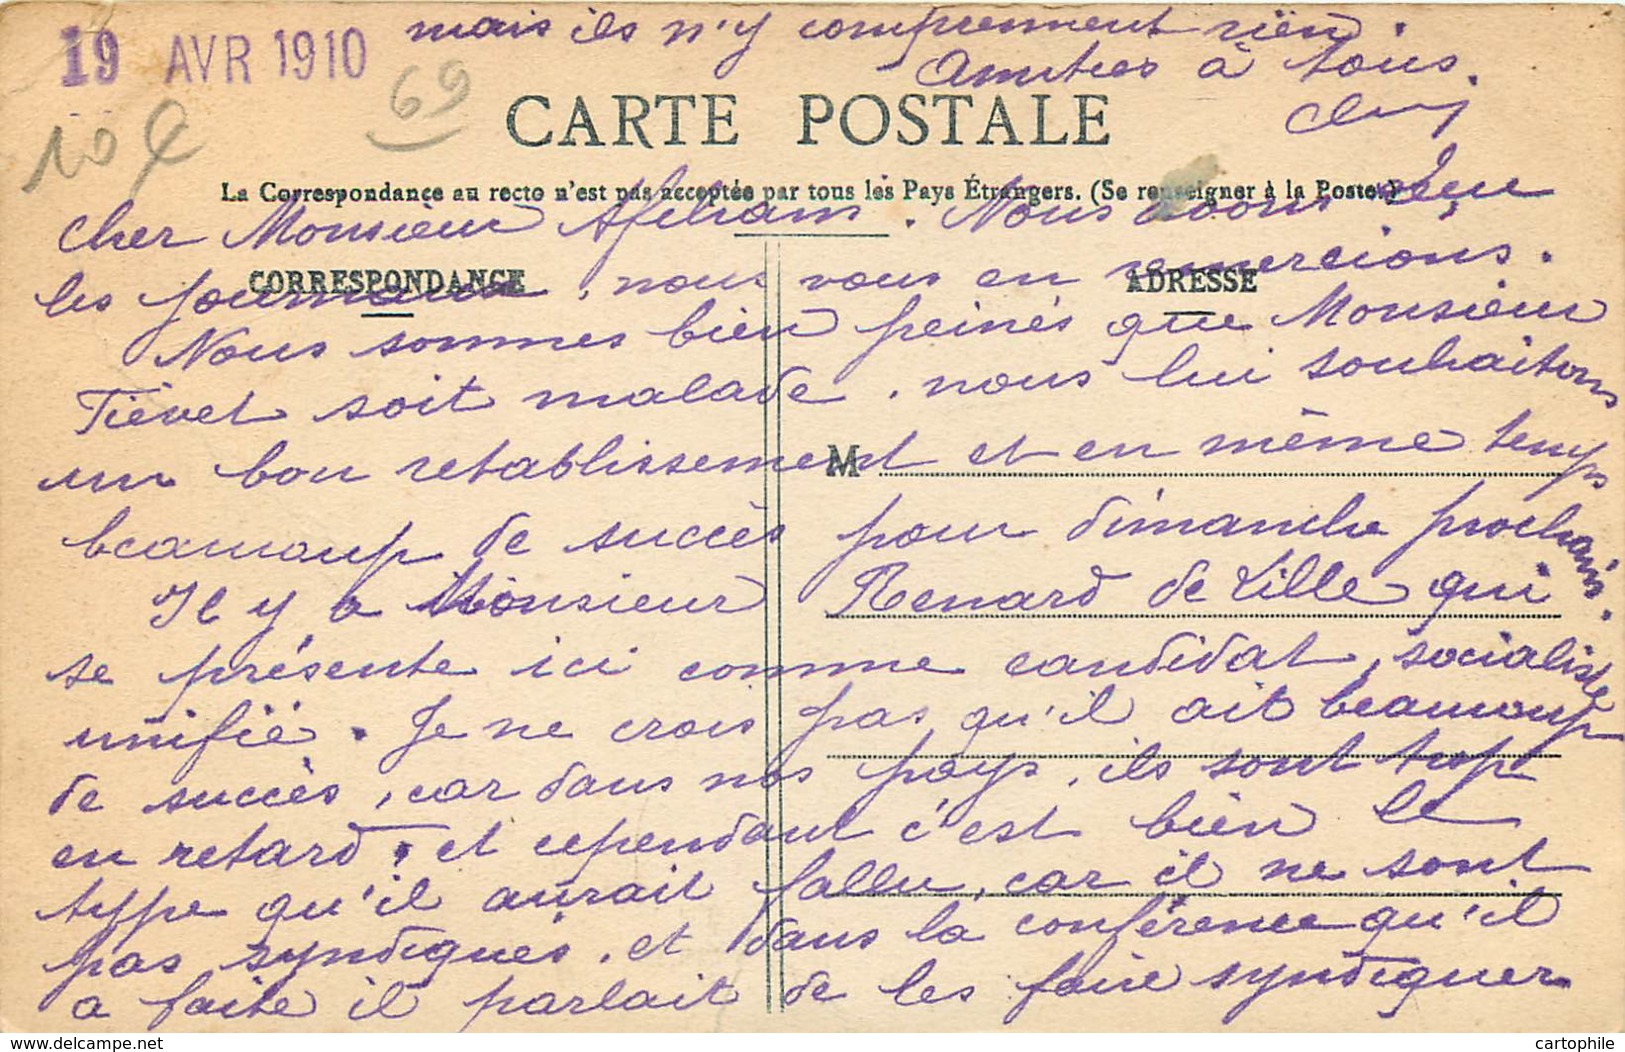 19 AVR 1910
mais ils n'y comprennent rien.
Amitiés à tous.
69
10 €
CARTE POSTALE
La Correspondance au recto n'est pas acceptée par tous les Pays Étrangers. (Se renseigner à la Poste.)
Cher Monsieur . Nous avons reçu
CORRESPONDANCE
ADRESSE
les journaux, nous vous en remercions.
Nous sommes bien peinés que Monsieur
Tièvet soit malade. nous lui souhaitons
un bon retablissement et en même temps
M
beaucoup de succès pour dimanche prochain.
Il y a Monsieur Renard de Lille qui
se présente ici comme candidat, socialiste
unifié. Je ne crois pas qu'il ait beaucoup
de succès, car dans nos pays, ils sont trop
en retard, et cependant c'est bien le
type qu'il aurait fallu, car il ne sont
pas syndiqués. et dans la conférence qu'il
a faite il parlait de les faire syndiquer
www.delcampe.net
cartophile